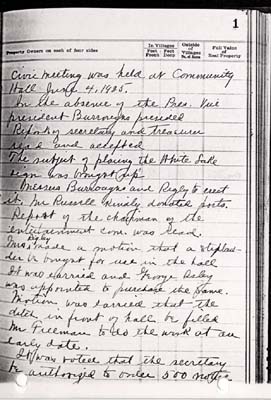 1
Property Owners on each of four sides
In Villages
Feet Front
Feet Deep
Outside of Villages
No. of Acres
Full Value of Real Property
Civic Meeting was held at Community
Hall June 4, 1925.
In the absence of the Pres. Vice
president Burroughs presided
Report of secretary and treasurer
read and accepted
The subject of placing the White Lake
sign was brought up
Messrs Burroughs and Regby to erect
it. Mr Russell kindly donated posts.
Report of the chairman of the
entertainment com was read.
Mrs Regby made a motion that a
be bought for use in the hall
It was carried and George
was appointed to purchase the same.
Motion was carried that the
ditch in front of hall be filled
Mr Freeman to do the work at an
early date.
It was voted that the secretary
be authorized to order 500